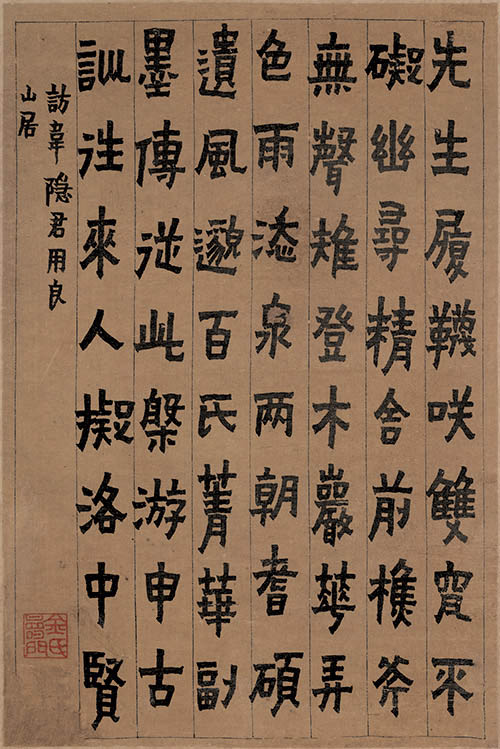 先生履韈咲雙穿不
礙幽尋精舍前樵斧
無聲雉登木巖華弄
色雨添泉两朝耆碩
遺風邈百氏菁華副
墨傳從此槃游申古
訓往來人擬洛中賢
訪韋隐君用良
山居
金氏
壽門